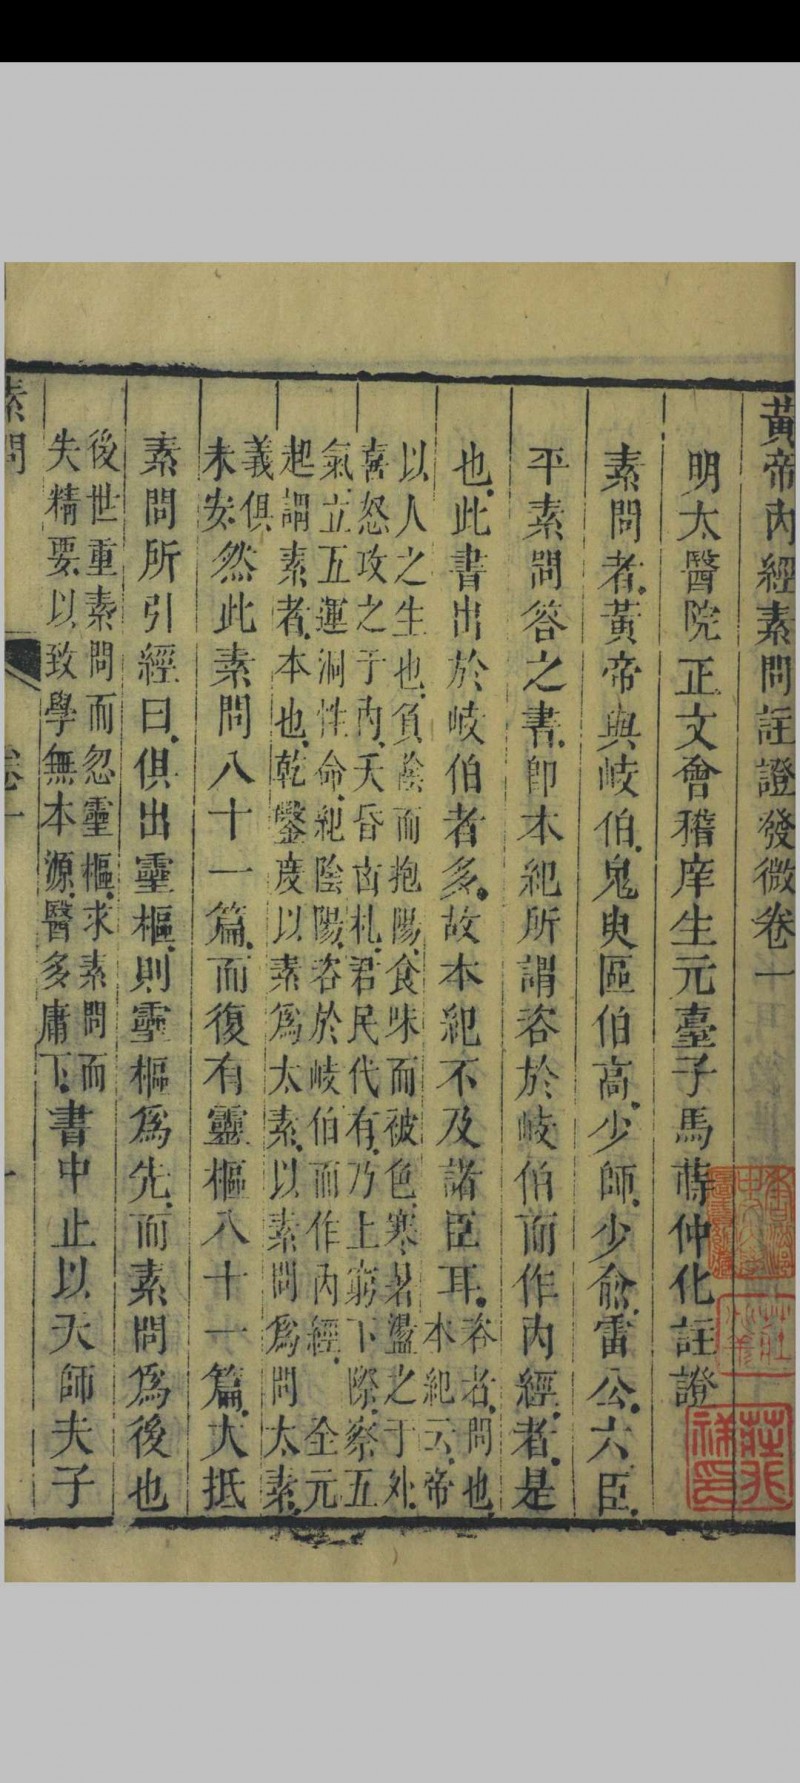 黃帝內經素問註證發微卷一
明太醫院正文會稽庠生元臺子馬蒔仲化註證
素問者黃帝與岐伯鬼臾區伯高少師少俞雷公六臣
平素問答之書即本紀所謂咨於岐伯而作內經者是
也此書出於岐伯者多故本紀不及諸臣耳
咨者問也
本紀云帝
以人之生也負陰而抱陽食味而被色寒暑盪之于外
喜怒攻之于內夭昏凶札君民代有乃上窮下際察五
氣立五運洞性命紀陰陽咨於岐伯而作內經 全元
起謂素者本也乾鑿度以素為太素以素問為問太素
義俱
未安
然此素問八十一篇而復有靈樞八十一篇大抵
素問所引經曰俱出靈樞則靈樞為先而素問為後也
後世重素問而忽靈樞求素問而
失精要以致學無本源醫多庸下
書中止以天師夫子
素問
卷一